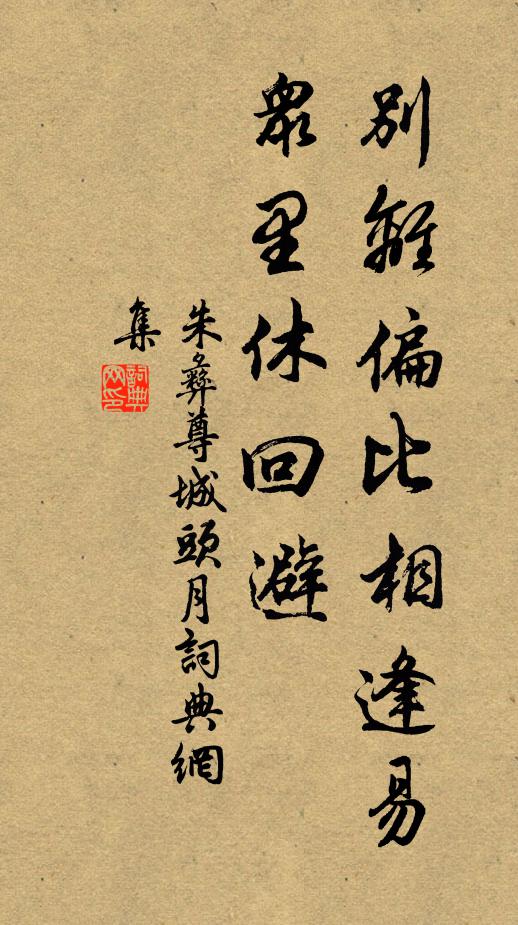 別離偏比相逢易
眾里休回避
朱彝尊城頭月詞典網
集
詞典
網印